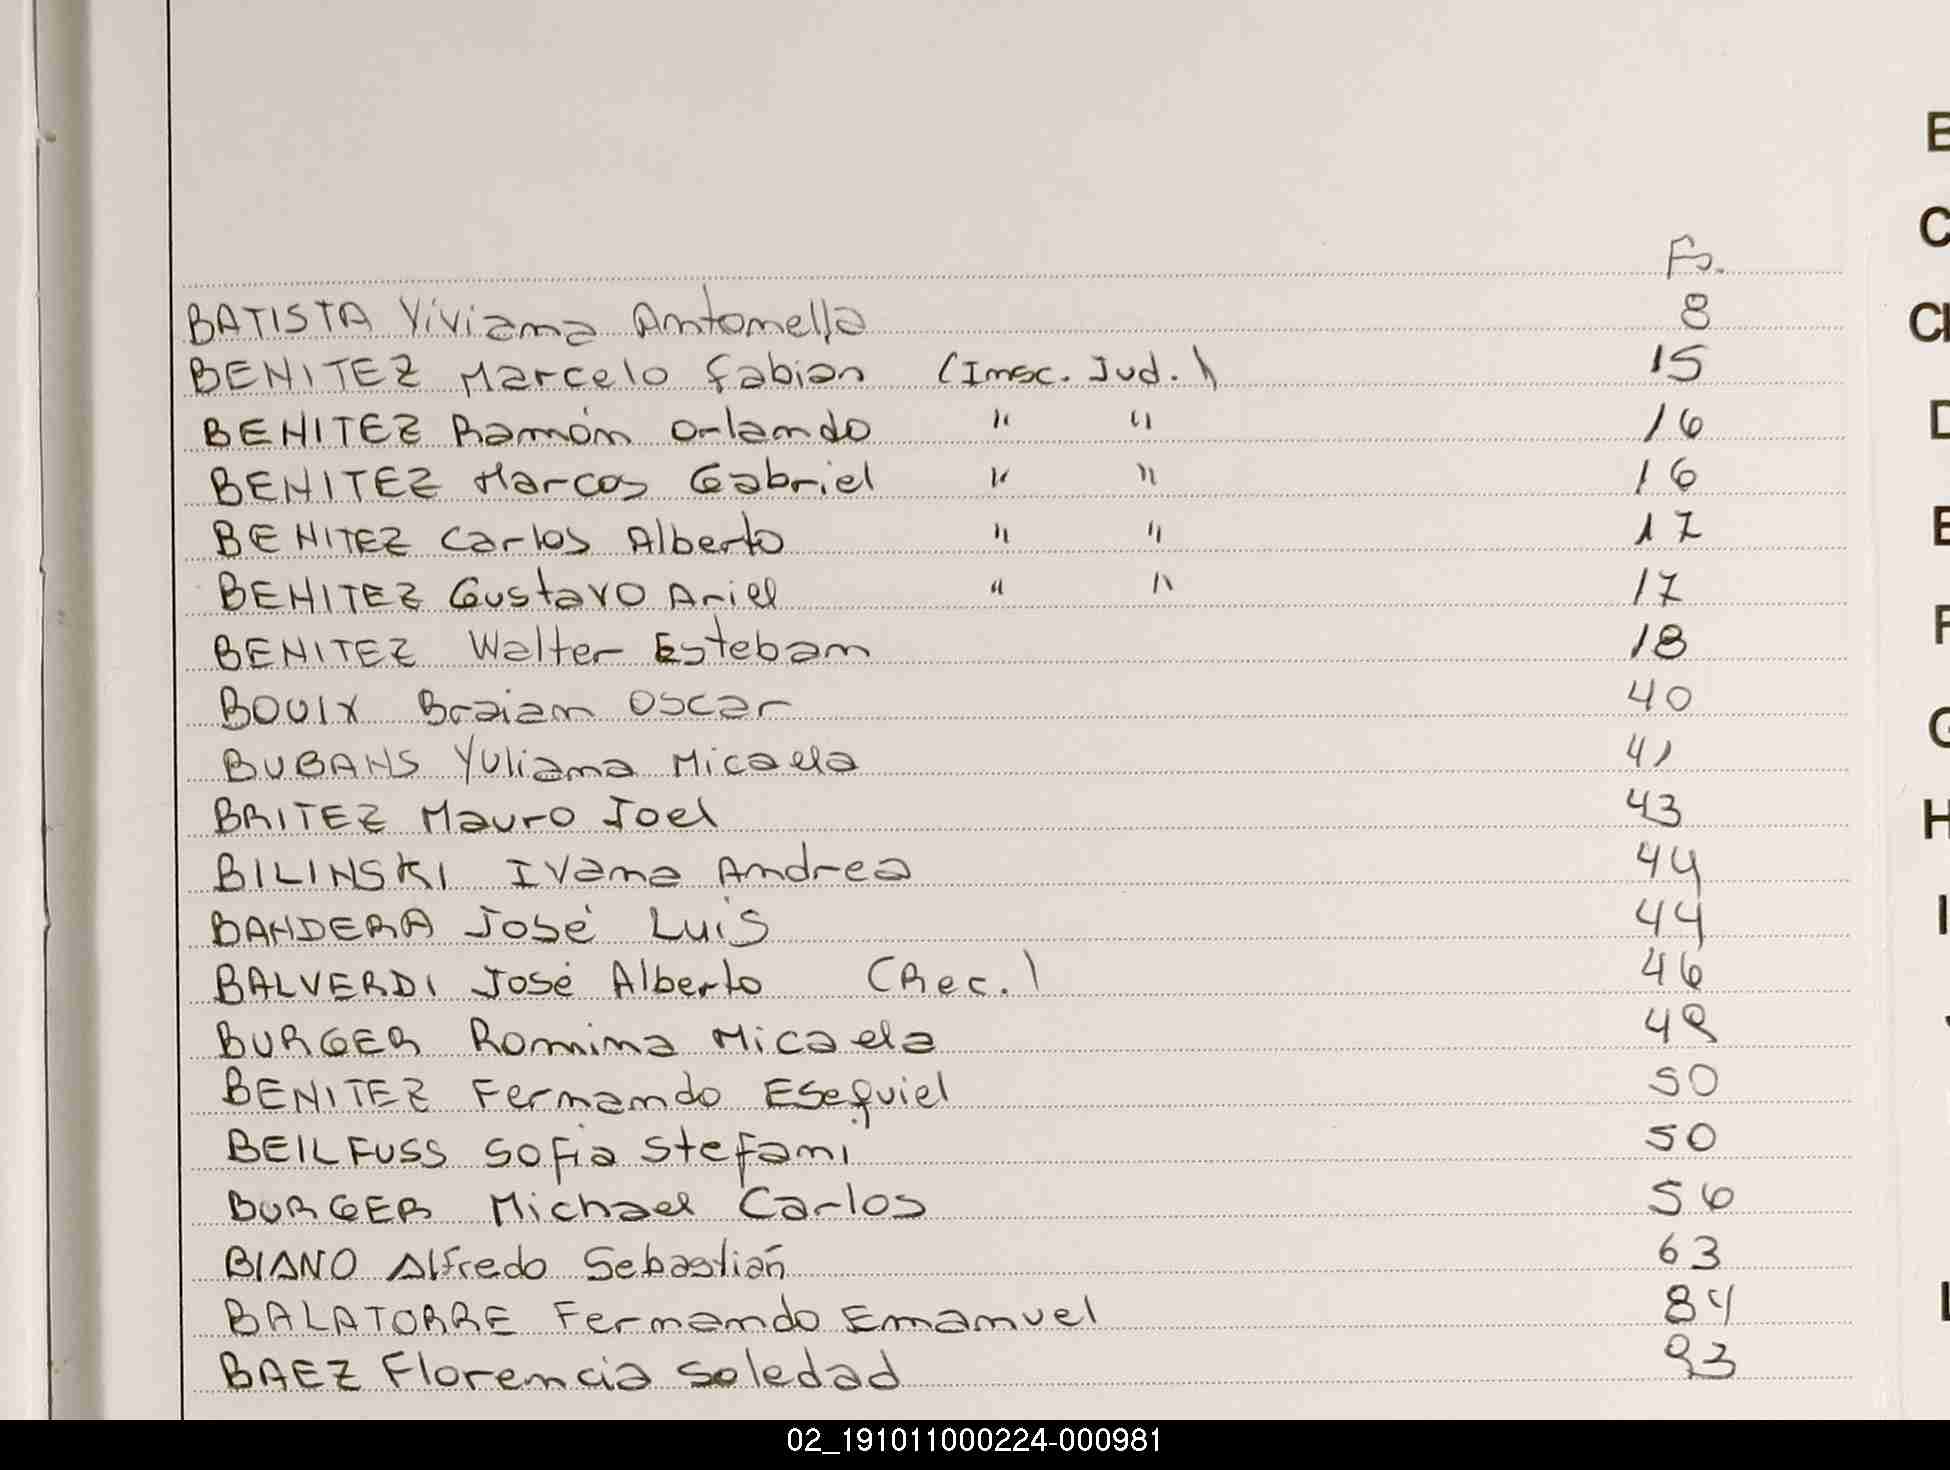 Fs.
BATISTA Viviana Antonella 8
BENITEZ Marcelo Fabian (Insc. Jud.) 15
BENITEZ Ramón Orlando " " 16
BENITEZ Marcos Gabriel " " 16
BENITEZ Carlos Alberto " " 17
BENITEZ Gustavo Ariel " " 17
BENITEZ Walter Esteban 18
BOUIX Braian Oscar 40
BUBANS Yuliana Micaela 41
BRITEZ Mauro Joel 43
BILINSKI Ivana Andrea 44
BANDERA José Luis 44
BALVERDI José Alberto (Rec.) 46
BURGER Romina Micaela 49
BENITEZ Fernando Esequiel 50
BEILFUSS Sofia Stefani 50
BURGER Michael Carlos 56
BIANO Alfredo Sebastián 63
BALATORRE Fernando Emanuel 84
BAEZ Florencia Soledad 93
C
D
G
H
I
02_191011000224-000981